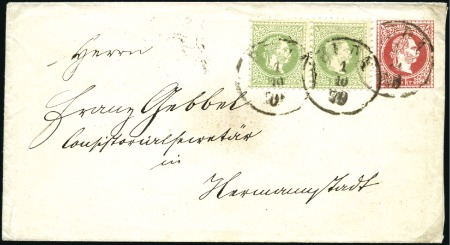 Herrn
Franz Gebbel
Consistorialsecretär
in
Hermannstadt
1
10
70
1
10
70